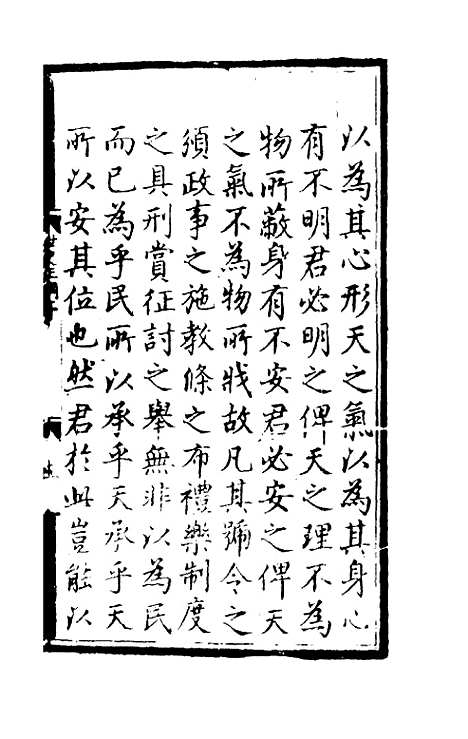 以為其心形天之氣以為其身心
有不明君必明之俾天之理不為
物所蔽身有不安君必安之俾天
之氣不為物所戕故凡其號令之
須政事之施教條之布禮樂制度
之具刑賞征討之舉無非以為民
而已為乎民所以承乎天承乎天
所以安其位也然君於此豈能以